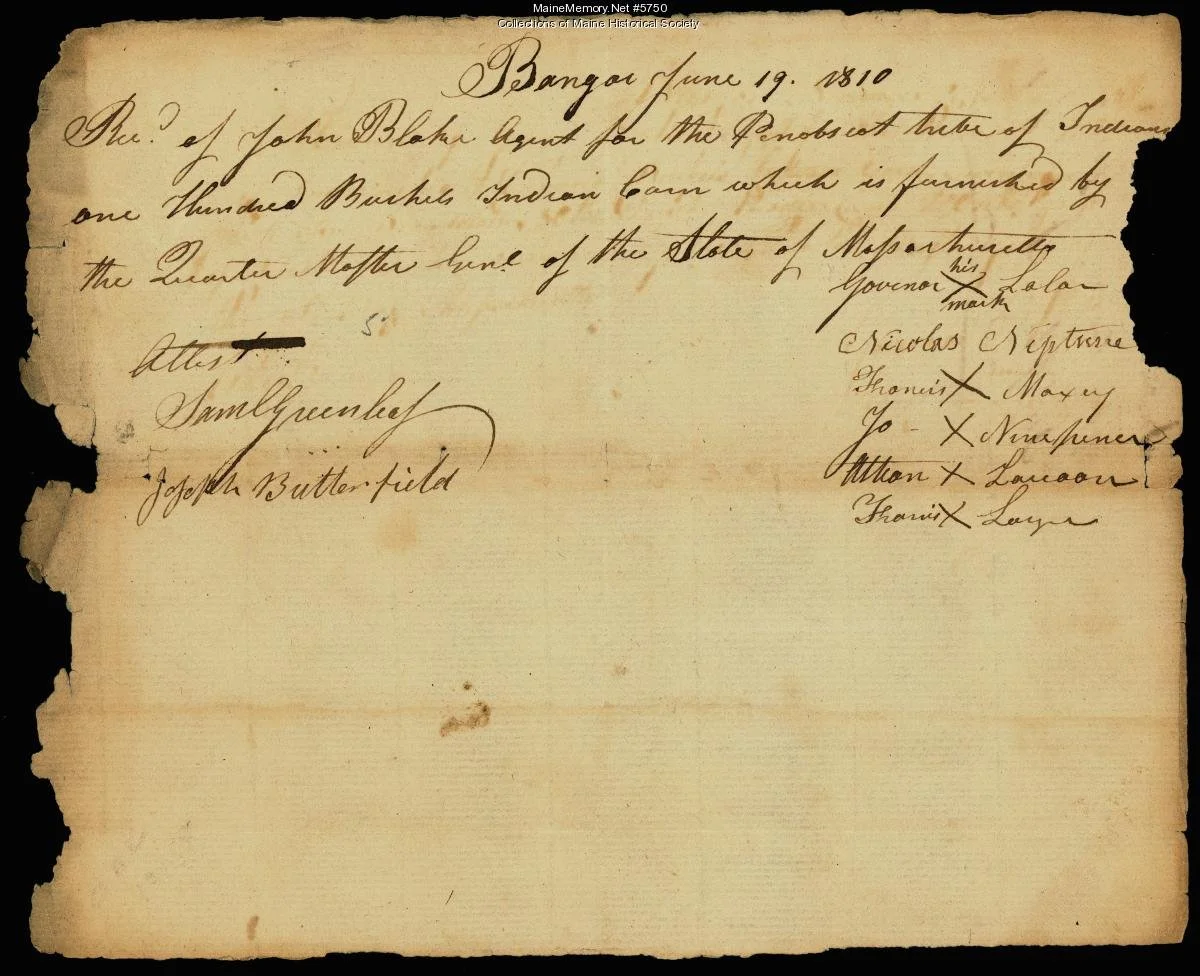 MaineMemory.Net #5750
Collections of Maine Historical Society
Bangor June 19. 1810
Recd. of John Blake Agent for the Penobscot tribe of Indians
one Hundred Bushels Indian Corn which is furnished by
the Quarter Master Genl. of the State of Massachusetts
his
Govenor X Lolar
mark
5
Nicolas Neptune
Attest
Francis X Moxey
Saml Greenleaf
Jo - X Ninepence
Joseph Butterfield
Attean X
Francis X